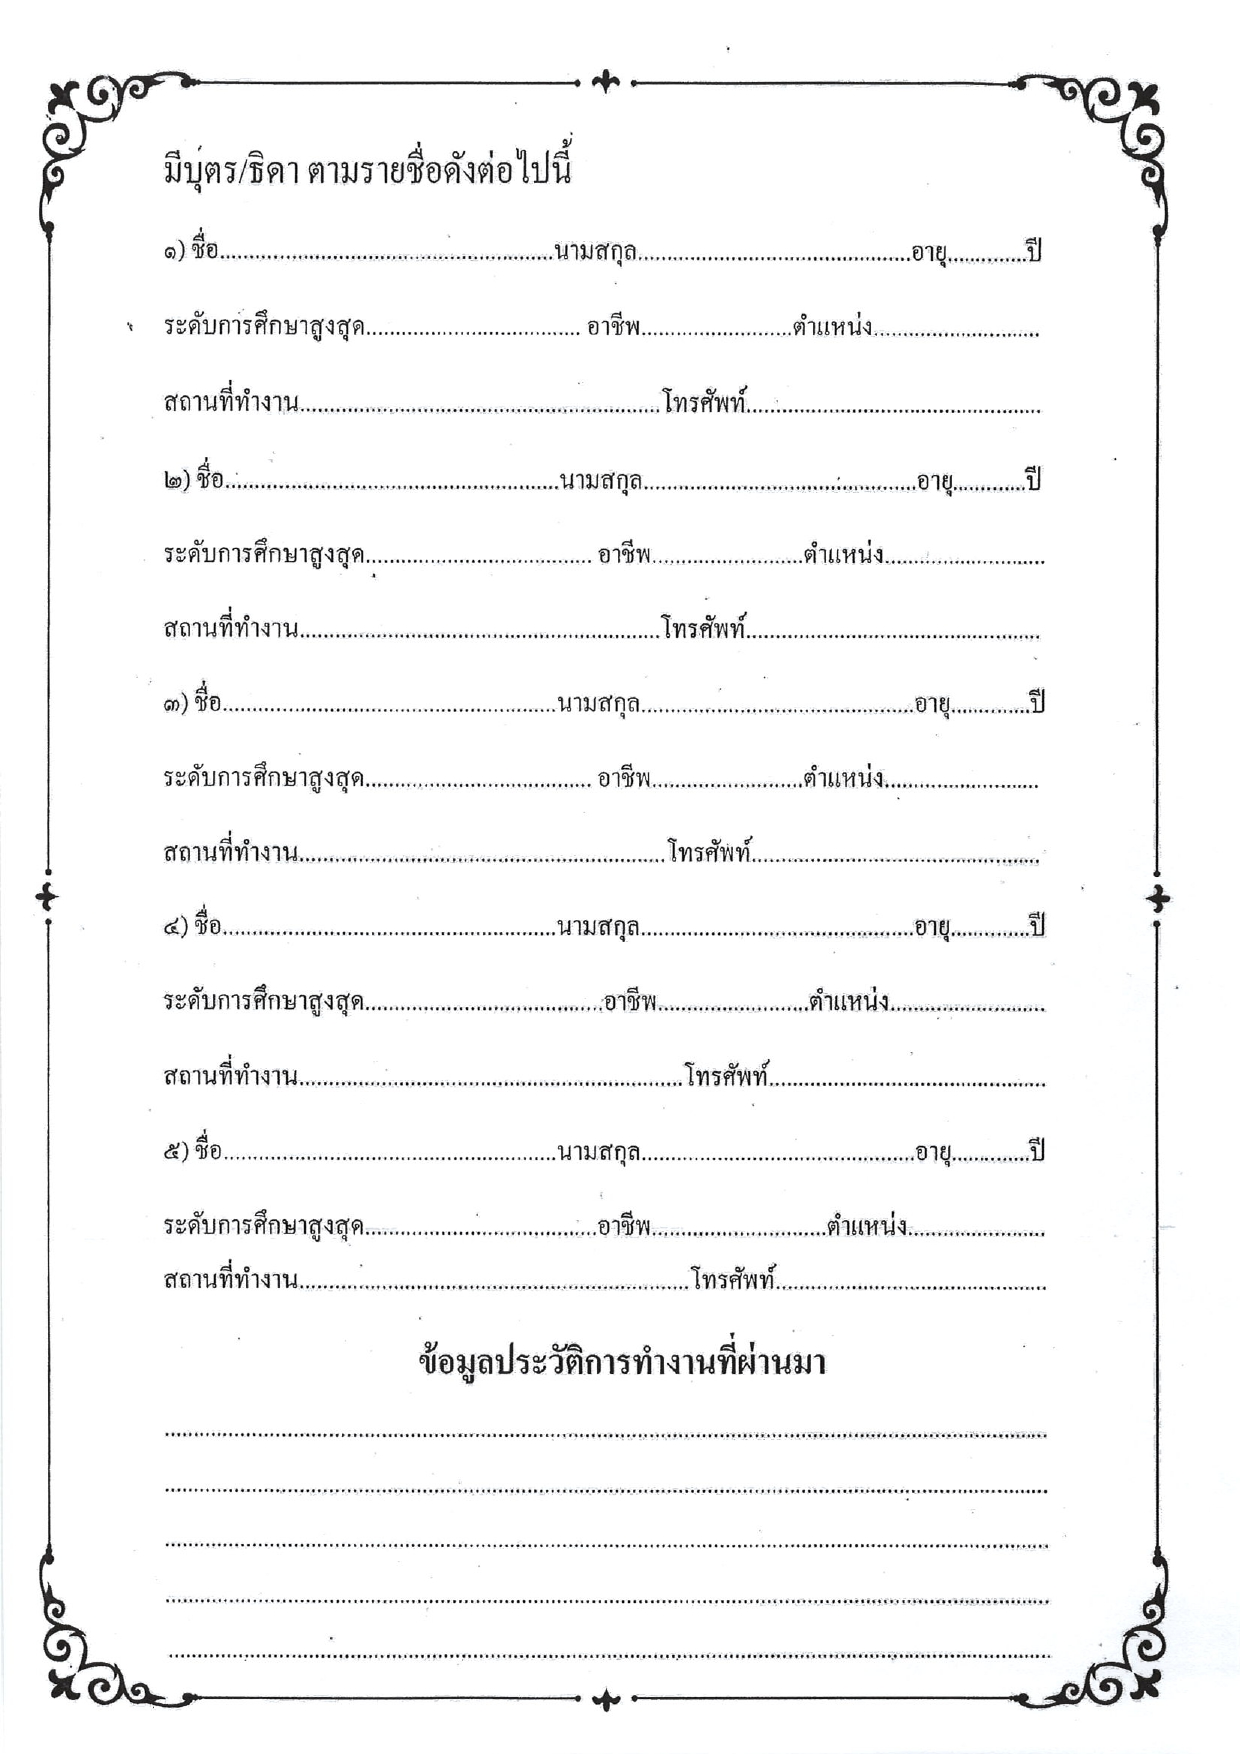 มีบุตร/ธิดา ตามรายชื่อดังต่อไปนี้
๑) ชื่อ........................................................นามสกุล..............................................อายุ.............ปี
ระดับการศึกษาสูงสุด.................................... อาชีพ.........................ตำแหน่ง............................
สถานที่ทำงาน............................................................โทรศัพท์.................................................
๒) ชื่อ........................................................นามสกุล..............................................อายุ............ปี
ระดับการศึกษาสูงสุด...................................... อาชีพ.........................ตำแหน่ง...........................
สถานที่ทำงาน............................................................โทรศัพท์.................................................
๓) ชื่อ........................................................นามสกุล..............................................อายุ.............ปี
ระดับการศึกษาสูงสุด...................................... อาชีพ.........................ตำแหน่ง..........................
สถานที่ทำงาน............................................................. โทรศัพท์................................................
๔) ชื่อ........................................................นามสกุล..............................................อายุ.............ปี
ระดับการศึกษาสูงสุด........................................อาชีพ.........................ตำแหน่ง..........................
สถานที่ทำงาน................................................................โทรศัพท์..............................................
๕) ชื่อ........................................................นามสกุล..............................................อายุ.............ปี
ระดับการศึกษาสูงสุด.......................................อาชีพ.............................ตำแหน่ง.......................
สถานที่ทำงาน.................................................................โทรศัพท์.............................................
ข้อมูลประวัติการทำงานที่ผ่านมา
....................................................................................................................................................
....................................................................................................................................................
....................................................................................................................................................
....................................................................................................................................................
....................................................................................................................................................